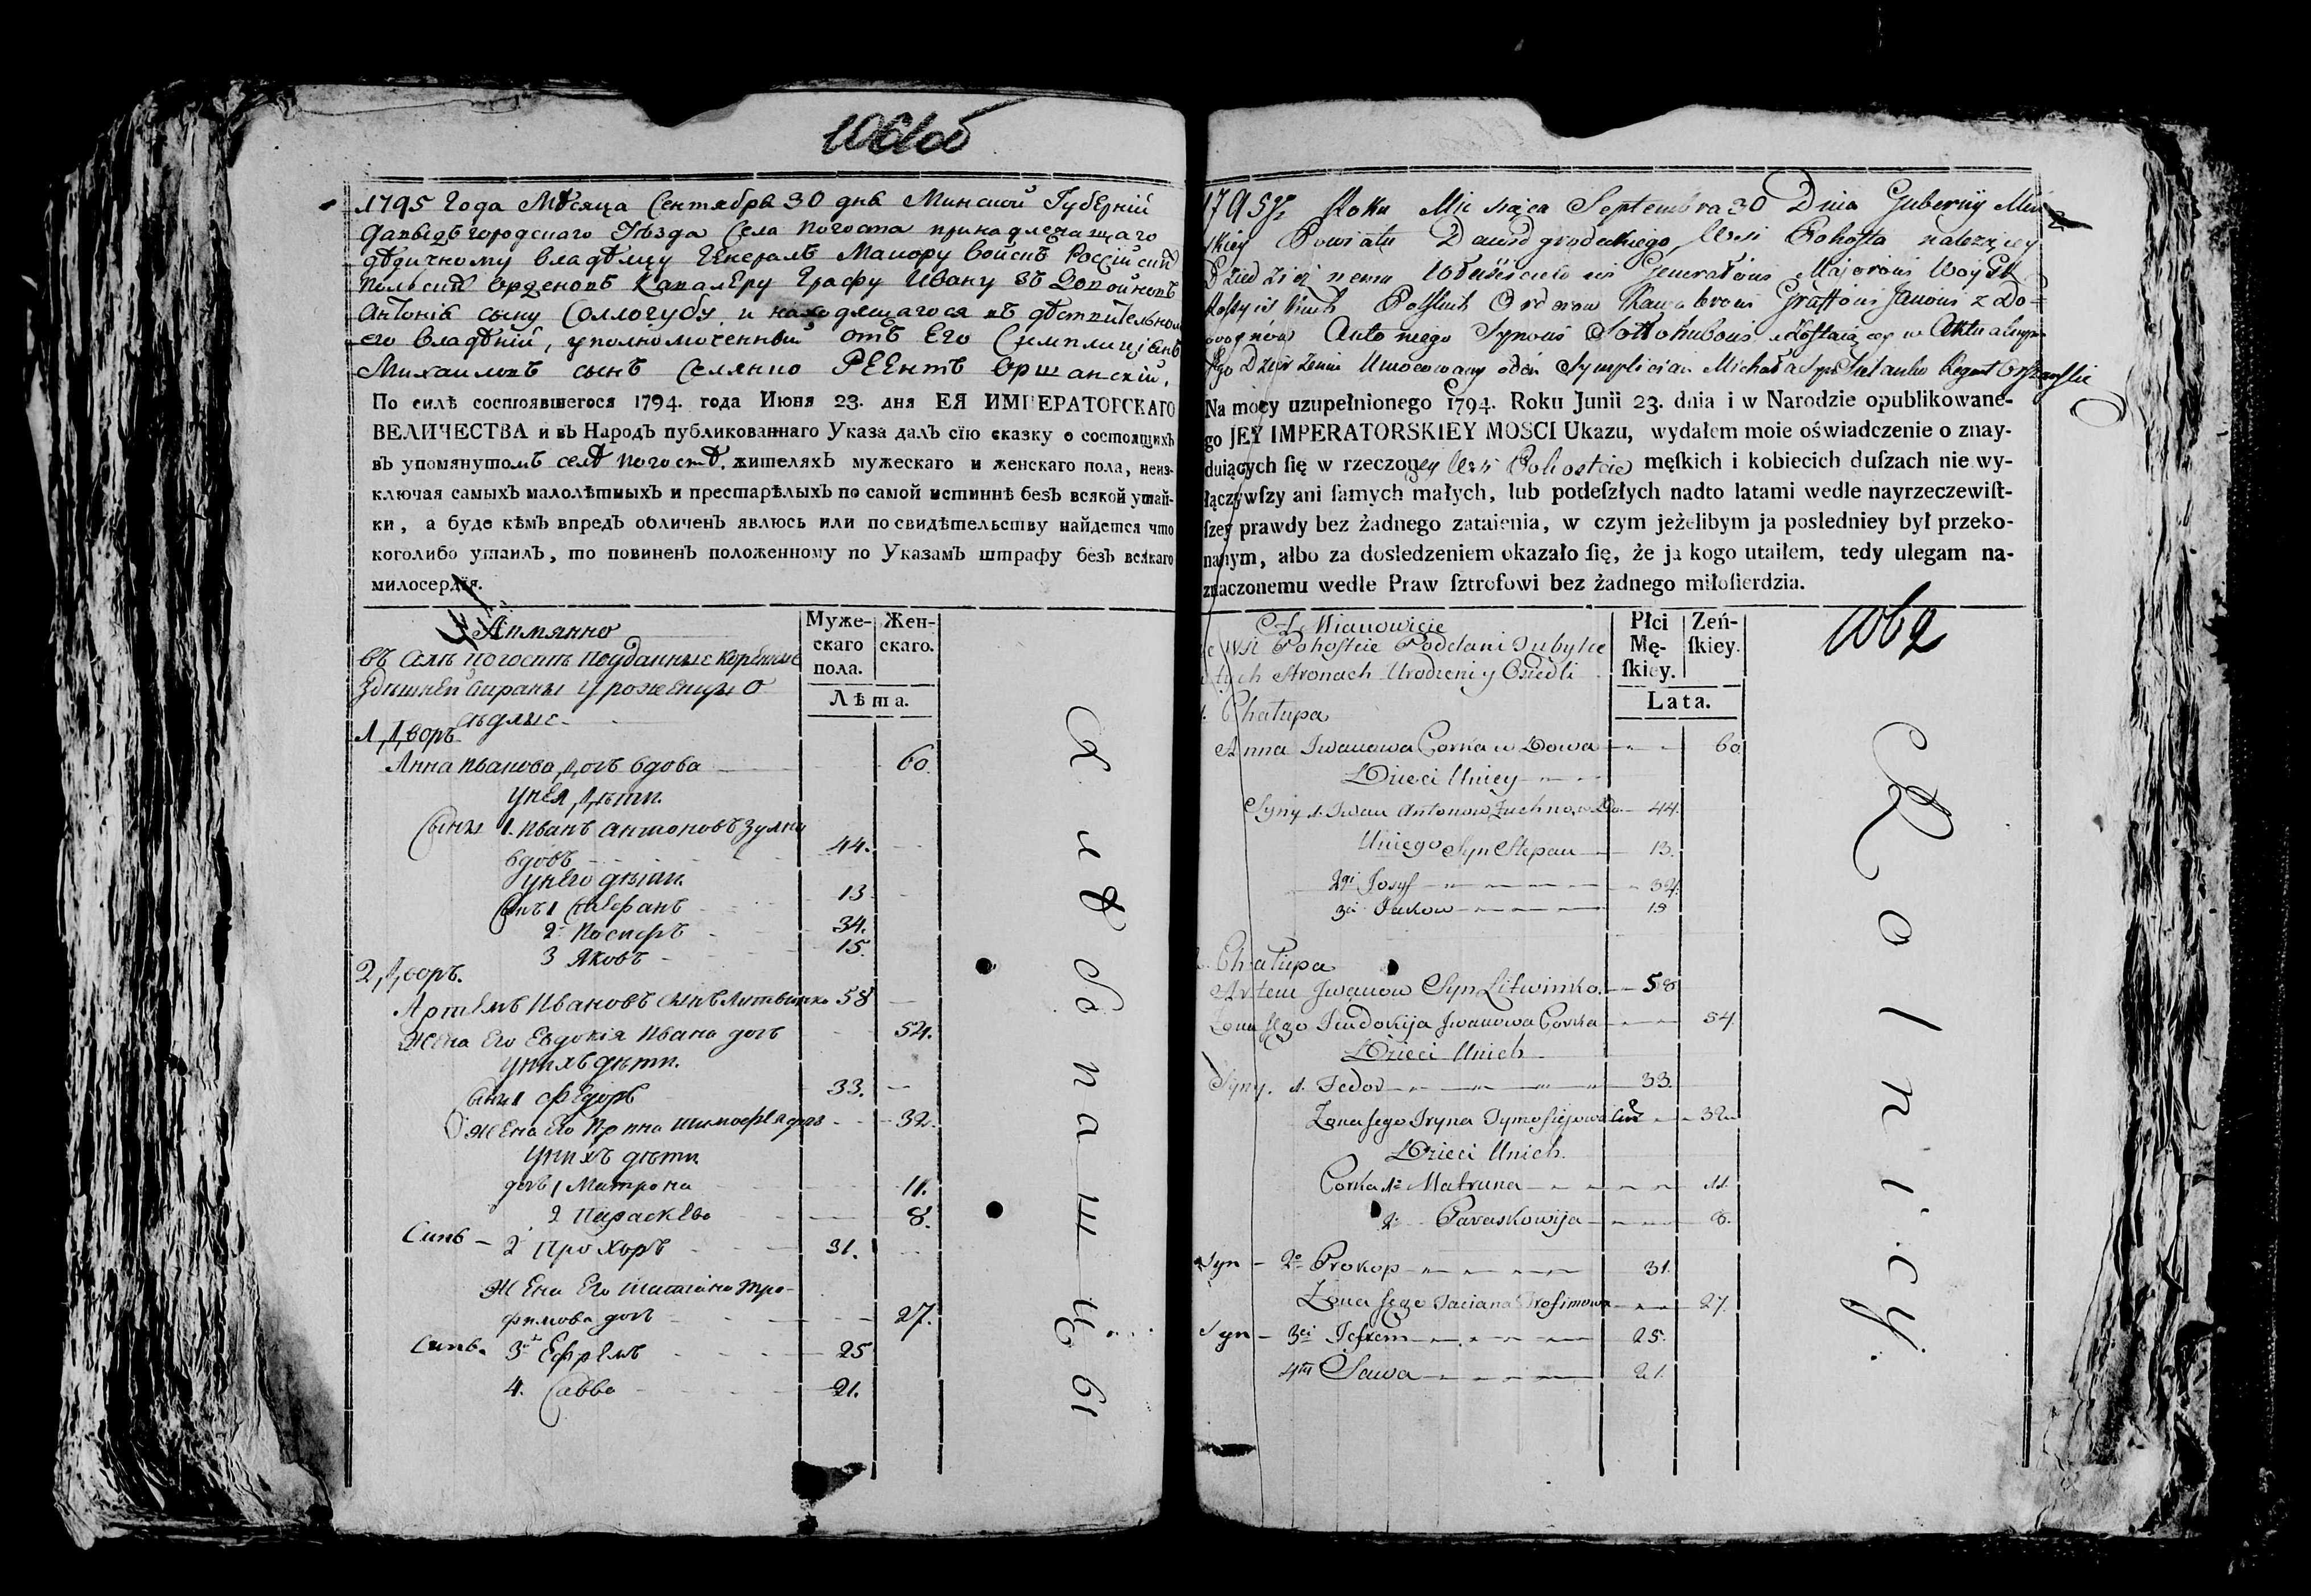 1061об
1795 Года Мѣсяца Сентября 30 дня Минской Губерніи
Давыдъ городскаго Уѣзда Села Погоста принадлежащаго
дѣдичному владѣлцу Генералъ Маиору войскъ Россійскихъ
полскихъ Орденовъ Кавалеру Графу Ивану зъ Довойновъ
Антонія сыну Соллогубу и находящагося въ дѣствительномъ
его владѣніи, уполномоченный отъ Его Симплиціянъ
Михаиловъ сынъ Селянко РЕЕнтъ Оршанскій,
По силѣ состоявшегося 1794. года Июня 23. дня ЕЯ ИМПЕРАТОРСКАГО
ВЕЛИЧЕСТВА и въ Народъ публикованнаго Указа далъ сїю сказку о состоящихъ
въ упомянутомъ селѣ Погостѣ, жителяхъ мужескаго и женскаго пола, неиз-
ключая самыхъ малолѣтныхъ и престарѣлыхъ по самой истиннѣ безъ всякой утай-
ки, а буде кѣмъ впредъ обличенъ явлюсь или по свидѣтельству найдется что
коголибо утаилъ, то повиненъ положенному по Указамъ штрафу безъ всякаго
милосердїя.
Аимянно
Муже-
скаго
пола.
Жен-
скаго.
Лѣта.
въ Селѣ Погостѣ Подданные Коренные
здѣшней стараны Уроженцы О
сѣдлыє
1, Дворъ
Анна Иванова дочь вдова 60.
У нея дѣти.
Сыны 1. Иванъ Антоновъ Зухно
вдовъ 44.
У него дѣти.
Сынъ 1 Стефанъ 13
2 Иосифъ 34.
3 Яковъ 15.
2, Дворъ.
Артемъ Ивановъ сынъ Литвинко 58
Жена Его Евдокія Ивана дочь 54.
У нихъ дѣти.
сыны 1 Федоръ 33.
Жена Его Ирина Тимофея дочь 32.
У нихъ дѣти
дочь 1 Матрона 11.
2 Параскева 8.
Сынъ – 2 Прохоръ 31.
Жена Его Татіана Тро-
фимова дочь 27.
Сынъ. 3й Ефремъ 25
4. Савва 21.
Хлѣбопашцы
1795. Roku Miesiąca Septembra 30 Dnia Gubernij Miń
skiey Powiatu Dawidgrodeckiego Wsi Pohosta należącey
Dziedzicznemu Włościcielowi Generałowi Majorowi Woysk
Rossyiskich Polskich Orderow Kawalerowi Graffowi Janowi z Do=
woynów Antoniego Synowi Sołłohubowi i zostaiącey w Aktualnym
Jego Dzierżeniu Umocowany odeń Symplician Michała Syn Sielanko Regent Orszański
Na mocy uzupełnionego 1794. Roku Junii 23. dnia i w Narodzie opublikowane-
go JEY IMPERATORSKIEY MOSCI Ukazu, wydałem moie oświadczenie o znay-
duiących ſię w rzeczoney Wsi Pohostcie męſkich i kobiecich duſzach nie wy-
łączywſzy ani ſamych małych, lub podeſzłych nadto latami wedle nayrzeczewiſt-
ſzey prawdy bez żadnego zataienia, w czym jeżelibym ja posledniey był przeko-
nanym, albo za dosledzeniem okazało ſię, że ja kogo utaiłem, tedy ulegam na-
znaczonemu wedle Praw ſztrofowi bez żadnego miłoſierdzia.
1062
A Mianowicie
Płci
Mę-
ſkiey.
Zeń-
ſkiey.
Lata.
we Wsi Pohostcie Poddani Tubylce
w tych Stronach Urodzeni y Osiedli
1. Chałupa
Anna Iwanowa Corka wdowa 60
Dzieci Uniey
Syny 1. Iwan Antonow Zuchno, wdo. 44.
Uniego Syn Stepan 13.
2gi Josyf 34.
3ci Jakow 15
2. Chałupa
Artem Iwanow Syn Litwinko. 58
Zona Jego Jeudokija Iwanowa Corka 54.
Dzieci Unich
Syny. 1. Fedor 33.
Zona Jego Iryna Tymofiejowa Cor 32
Dzieci Unich.
Corka 1a Matruna 11.
2a Paraskowija 8.
Syn – 2o Prokop 31.
Zona Jego Taciana Trofimowa 27.
Syn – 3ci Jefrem 25.
4ty Sawa 21.
Rolnicy.